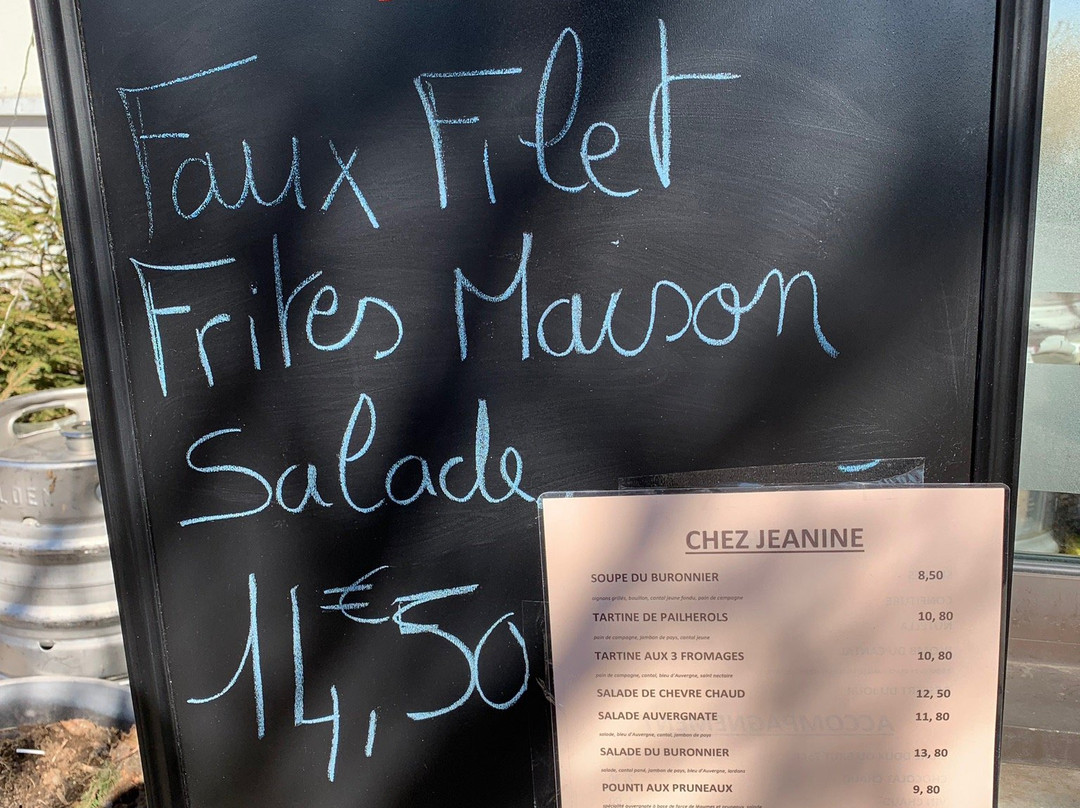 Faux Filet
Frites Maison
Salade
14,€50
CHEZ JEANINE
SOUPE DU BURONNIER 8,50
oignons grillés, bouillon, cantal jeune fondu, pain de campagne
TARTINE DE PAILHEROLS 10, 80
pain de campagne, jambon de pays, cantal jeune
TARTINE AUX 3 FROMAGES 10, 80
pain de campagne, cantal, bleu d'Auvergne, saint nectaire
SALADE DE CHEVRE CHAUD 12, 50
SALADE AUVERGNATE 11, 80
salade, bleu d'Auvergne, cantal, jambon de pays
SALADE DU BURONNIER 13, 80
salade, cantal pané, jambon de pays, bleu d'Auvergne, lardons
POUNTI AUX PRUNEAUX 9, 80
spécialité auvergnate à base de farce de légumes et pruneaux, salade